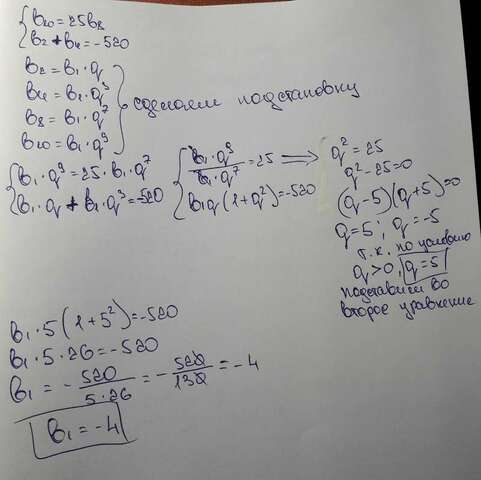 b₁₀ = 25b₈
b₂ + b₄ = -520
b₂ = b₁ · q
b₄ = b₁ · q³
b₈ = b₁ · q⁷
b₁₀ = b₁ · q⁹
сделаем подстановку
b₁ · q⁹ = 25 · b₁ · q⁷
b₁ · q + b₁ · q³ = -520
b₁ · q⁹ / b₁ · q⁷ = 25 ⟹
b₁q(1 + q²) = -520
q² = 25
q² - 25 = 0
(q - 5)(q + 5) = 0
q = 5; q = -5
т.к. по условию
q > 0, q = 5
подставим во
второе уравнение
b₁ · 5(1 + 5²) = -520
b₁ · 5 · 26 = -520
b₁ = - 520 / 5 · 26 = - 520 / 130 = -4
b₁ = -4